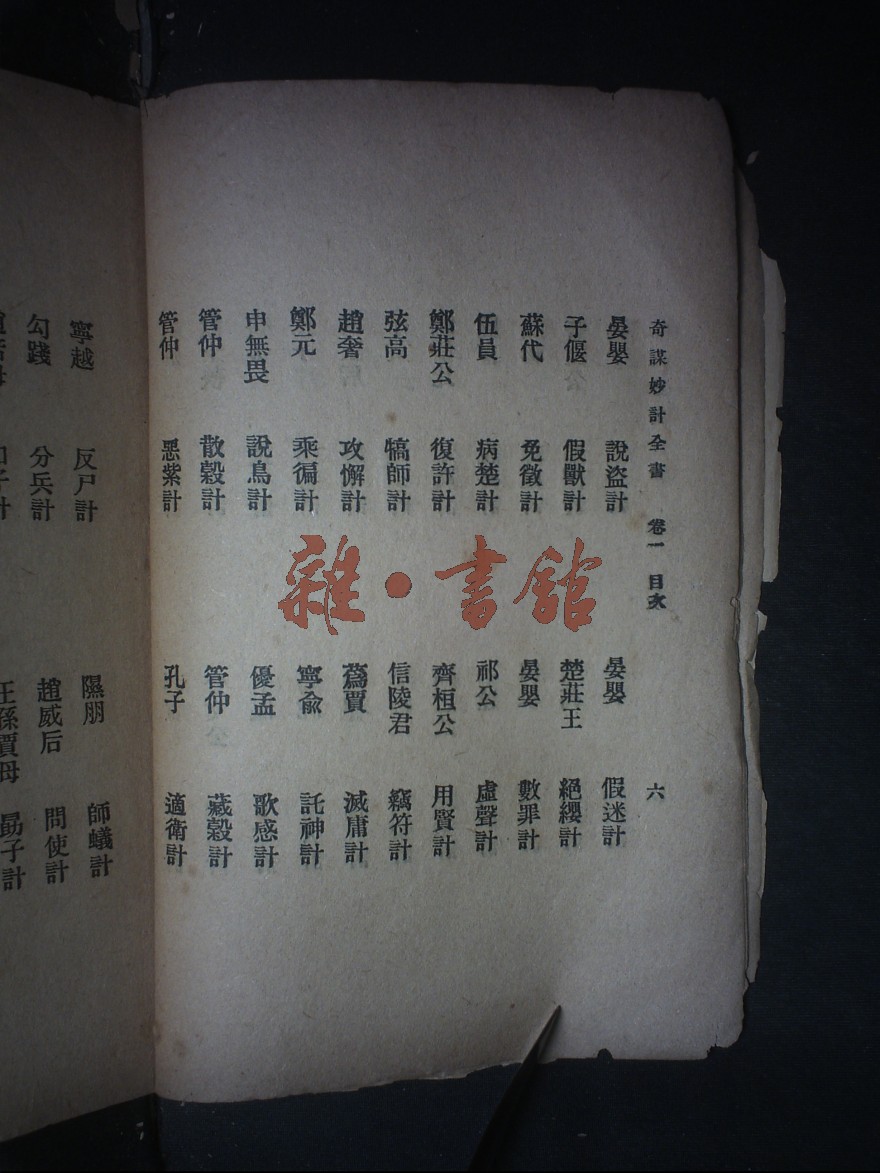 奇謀妙計全書 卷一 目次 六
晏嬰 說盜計 晏嬰 假迷計
子偃 假獸計 楚莊王 絕纓計
蘇代 免徵計 晏嬰 數罪計
伍員 病楚計 祁公 虛聲計
鄭莊公 復許計 齊桓公 用賢計
弦高 犒師計 信陵君 竊符計
趙奢 攻懈計 蒍賈 滅庸計
鄭元 乘徧計 寧俞 託神計
申無畏 說鳥計 優孟 歌感計
管仲 散穀計 管仲 藏穀計
管仲 惡紫計 孔子 適衛計
寧越 反尸計 隰朋 師蟻計
勾踐 分兵計 趙威后 問使計
王孫賈母 勗子計
雜·書館